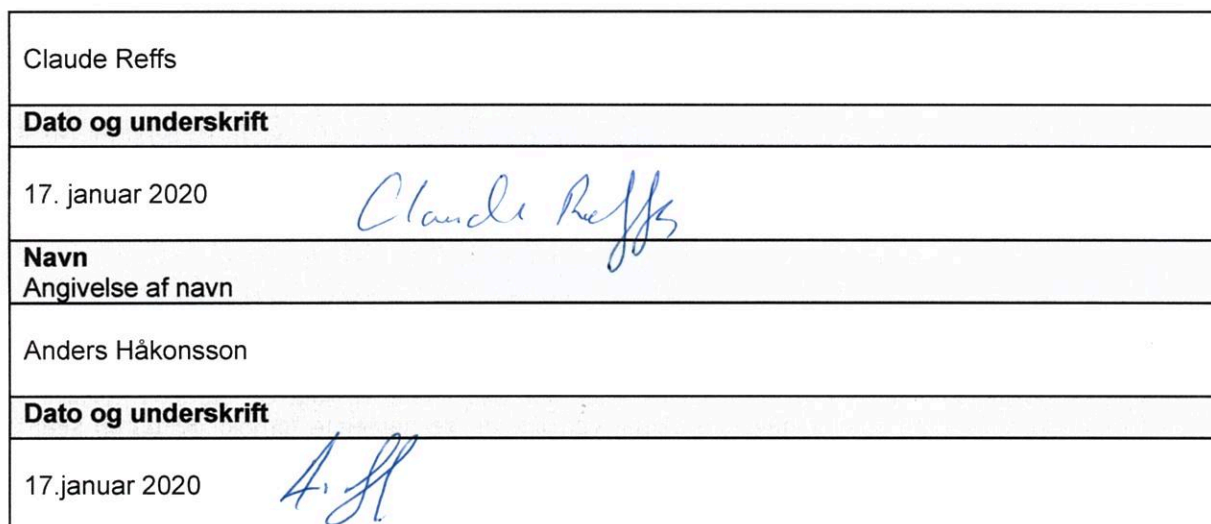 Claude Reffs
Dato og underskrift
17. januar 2020
Claude Reffs
Navn
Angivelse af navn
Anders Håkonsson
Dato og underskrift
17.januar 2020